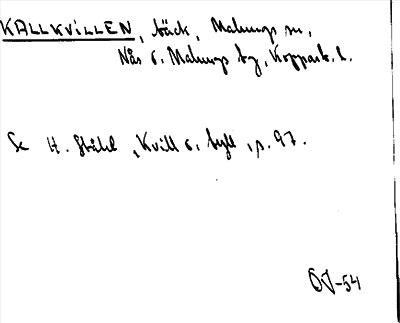 KALLKVILLEN, bäck, Malungs sn,
Nås o. Malungs tg, Koppark. l.
Se H. Ståhl, Kvill o. tyll, p. 97.
ÖJ-54